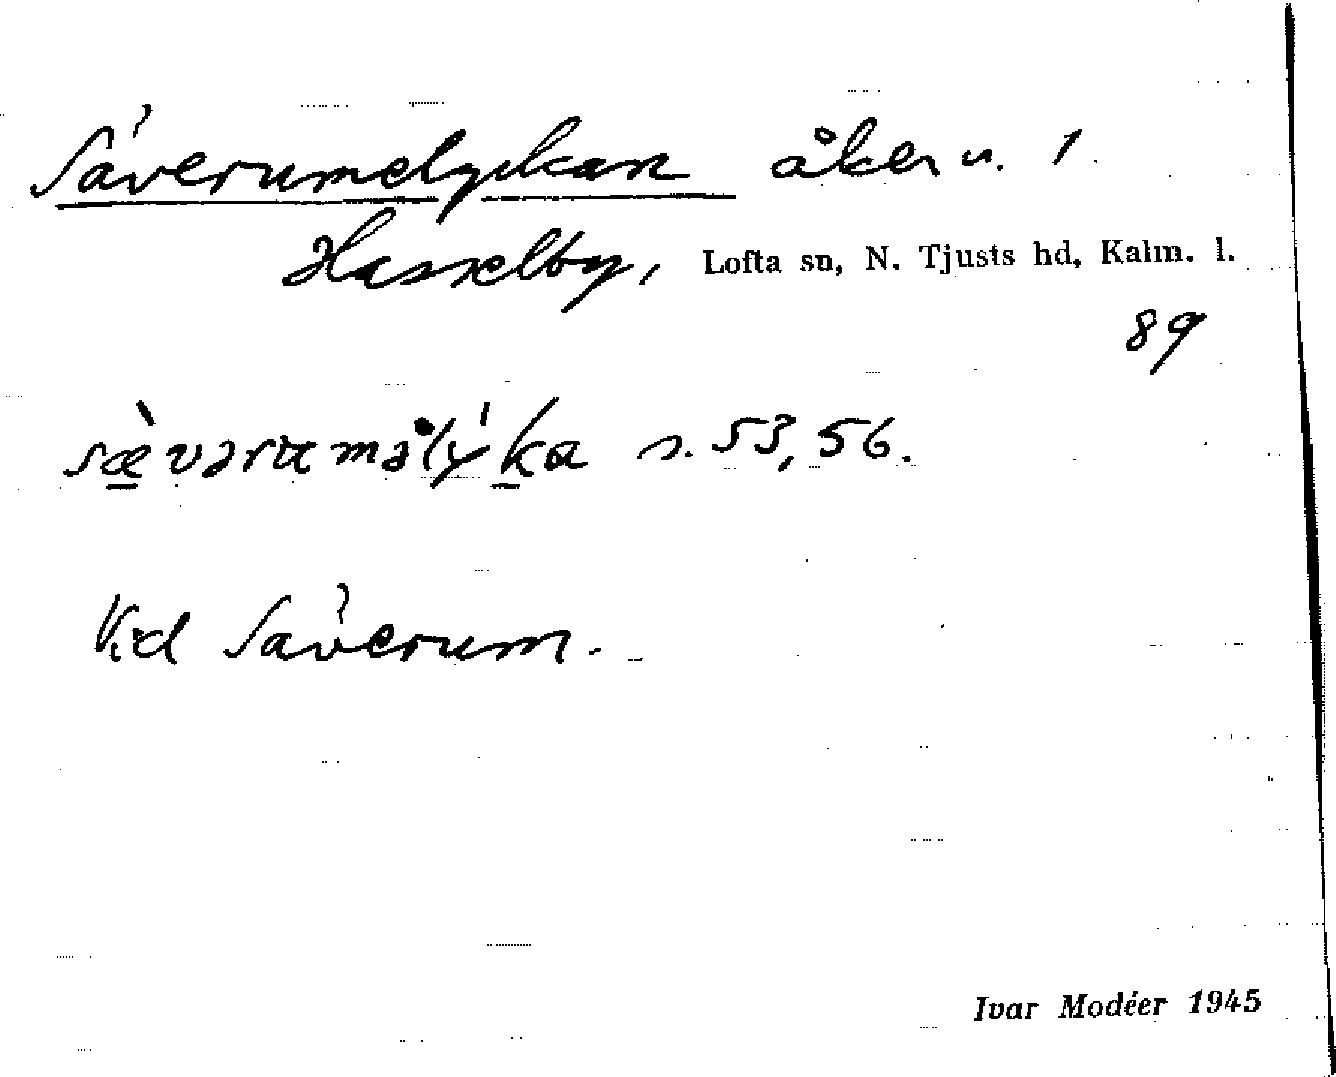 Såverumelyckan åker u. 1.
Hasselby, Lofta sn, N. Tjusts hd, Kalm. l.
89
s. 53, 56.
Vid Såverum.
Ivar Modéer 1945